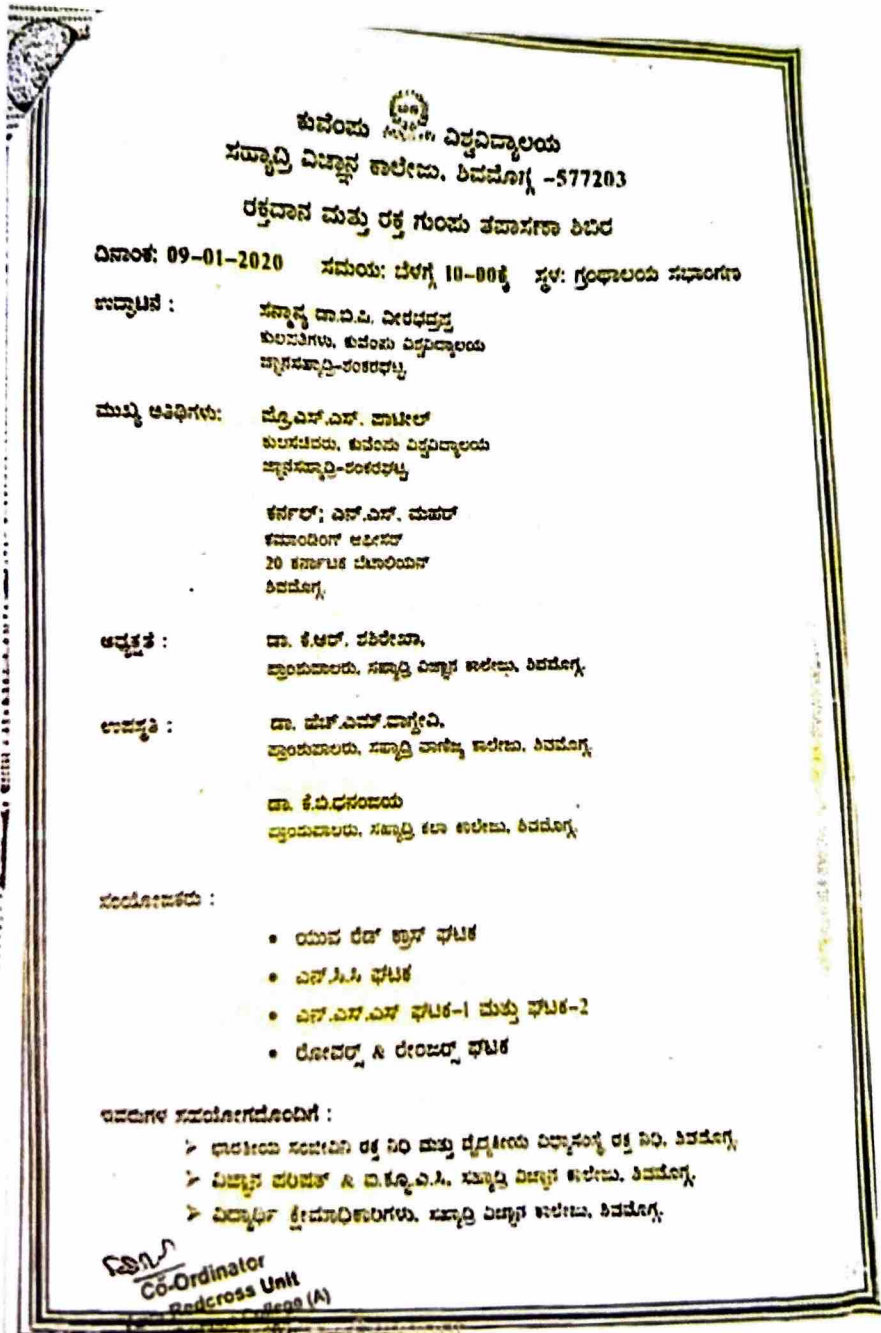 ಕುವೆಂಪು ವಿಶ್ವವಿದ್ಯಾಲಯ
ಸಹ್ಯಾದ್ರಿ ವಿಜ್ಞಾನ ಕಾಲೇಜು, ಶಿವಮೊಗ್ಗ -577203
ರಕ್ತದಾನ ಮತ್ತು ರಕ್ತ ಗುಂಪು ತಪಾಸಣಾ ಶಿಬಿರ
ದಿನಾಂಕ: 09-01-2020 ಸಮಯ: ಬೆಳಗ್ಗೆ 10-00ಕ್ಕೆ ಸ್ಥಳ: ಗ್ರಂಥಾಲಯ ಸಭಾಂಗಣ
ಉದ್ಘಾಟನೆ : ಸನ್ಮಾನ್ಯ ಡಾ.ಬಿ.ಪಿ. ವೀರಭದ್ರಪ್ಪ
ಕುಲಪತಿಗಳು, ಕುವೆಂಪು ವಿಶ್ವವಿದ್ಯಾಲಯ
ಜ್ಞಾನಸಹ್ಯಾದ್ರಿ-ಶಂಕರಘಟ್ಟ
ಮುಖ್ಯ ಅತಿಥಿಗಳು: ಪ್ರೊ.ಎಸ್.ಎಸ್. ಪಾಟೀಲ್
ಕುಲಸಚಿವರು, ಕುವೆಂಪು ವಿಶ್ವವಿದ್ಯಾಲಯ
ಜ್ಞಾನಸಹ್ಯಾದ್ರಿ-ಶಂಕರಘಟ್ಟ
ಕರ್ನಲ್; ಎನ್.ಎಸ್. ಮಹರ್
ಕಮಾಂಡಿಂಗ್ ಆಫೀಸರ್
20 ಕರ್ನಾಟಕ ಬೆಟಾಲಿಯನ್
ಶಿವಮೊಗ್ಗ.
ಅಧ್ಯಕ್ಷತೆ : ಡಾ. ಕೆ.ಆರ್. ಶಶಿರೇಖಾ,
ಪ್ರಾಂಶುಪಾಲರು, ಸಹ್ಯಾದ್ರಿ ವಿಜ್ಞಾನ ಕಾಲೇಜು, ಶಿವಮೊಗ್ಗ.
ಉಪಸ್ಥಿತಿ : ಡಾ. ಹೆಚ್.ಎಮ್.ವಾಗ್ದೇವಿ,
ಪ್ರಾಂಶುಪಾಲರು, ಸಹ್ಯಾದ್ರಿ ವಾಣಿಜ್ಯ ಕಾಲೇಜು, ಶಿವಮೊಗ್ಗ.
ಡಾ. ಕೆ.ಬಿ.ಧನಂಜಯ
ಪ್ರಾಂಶುಪಾಲರು, ಸಹ್ಯಾದ್ರಿ ಕಲಾ ಕಾಲೇಜು, ಶಿವಮೊಗ್ಗ.
ಸಂಯೋಜಕರು :
• ಯುವ ರೆಡ್ ಕ್ರಾಸ್ ಘಟಕ
• ಎನ್.ಸಿ.ಸಿ ಘಟಕ
• ಎನ್.ಎಸ್.ಎಸ್ ಘಟಕ-1 ಮತ್ತು ಘಟಕ-2
• ರೋವರ್ಸ್ & ರೇಂಜರ್ಸ್ ಘಟಕ
ಇವರುಗಳ ಸಹಯೋಗದೊಂದಿಗೆ :
➤ ಭಾರತೀಯ ಸಂಜೀವಿನಿ ರಕ್ತ ನಿಧಿ ಮತ್ತು ವೈದ್ಯಕೀಯ ವಿಧ್ಯಾಸಂಸ್ಥೆ ರಕ್ತ ನಿಧಿ, ಶಿವಮೊಗ್ಗ.
➤ ವಿಜ್ಞಾನ ಪರಿಷತ್ & ಐ.ಕ್ಯೂ.ಎ.ಸಿ, ಸಹ್ಯಾದ್ರಿ ವಿಜ್ಞಾನ ಕಾಲೇಜು, ಶಿವಮೊಗ್ಗ.
➤ ವಿದ್ಯಾರ್ಥಿ ಕ್ಷೇಮಾಧಿಕಾರಿಗಳು, ಸಹ್ಯಾದ್ರಿ ವಿಜ್ಞಾನ ಕಾಲೇಜು, ಶಿವಮೊಗ್ಗ.
Co-Ordinator
Redcross Unit
College (A)